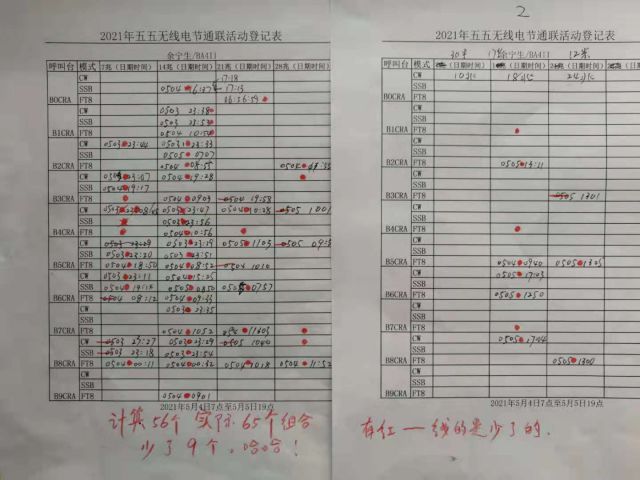 2021年五五无线电节通联活动登记表
余宁生/BA4II
呼叫台 模式 7兆（日期时间） 14兆（日期时间） 21兆（日期时间） 28兆（日期时间）
CW 17:18
SSB 17:13
B0CRA FT8
CW 0503 23:38
SSB 0503 23:53
B1CRA FT8
CW 0503 23:44 0503 23:33
SSB 0505 0707
B2CRA FT8
CW 0504 19:28
SSB 0504 19:17
B3CRA FT8 0504 0903 0504 19:58
CW 0503 23:47 0504 10:28 0505 1001
SSB 0503 23:56
B4CRA FT8 0504 10:56
CW 0503 23:29 0503 23:19 0505 1103
SSB 0503 23:20 0503 23:51
B5CRA FT8 0504 18:50 0504 08:52 0504 1010
CW 0503 23:11 0504 15:25
SSB 0504 19:14 0505 0850 0505 0757
B6CRA FT8 0504 08:12 0504 09:33
CW
SSB
B7CRA FT8 0504 1052
CW 0503 23:27 0503 23:29 0505 1040
SSB 0503 23:18 0503 23:54
B8CRA FT8 0504 00:11 0504 00:32 0504 1018 0504 11:52
CW
SSB
B9CRA FT8 0504 0901
2021年5月4日7点至5月5日19点
计算56个 实际65个组合
少了9个，哈哈！
2
2021年五五无线电节通联活动登记表
30米 17米 余宁生/BA4II 12米
呼叫台 模式 （日期时间） （日期时间） （日期时间） （日期时间）
CW 10兆 18兆 24兆
SSB
B0CRA FT8
CW
SSB
B1CRA FT8
CW
SSB
B2CRA FT8 0505 13:11
CW
SSB
B3CRA FT8 0505 1301
CW
SSB
B4CRA FT8
CW
SSB
B5CRA FT8 0504 0940 0505 1305
CW 0505 1703
SSB
B6CRA FT8 0505 1250
CW
SSB
B7CRA FT8
CW 0505 1704
SSB
B8CRA FT8 0504 1304
CW
SSB
B9CRA FT8
2021年5月4日7点至5月5日19点
有红一线的是少了的.